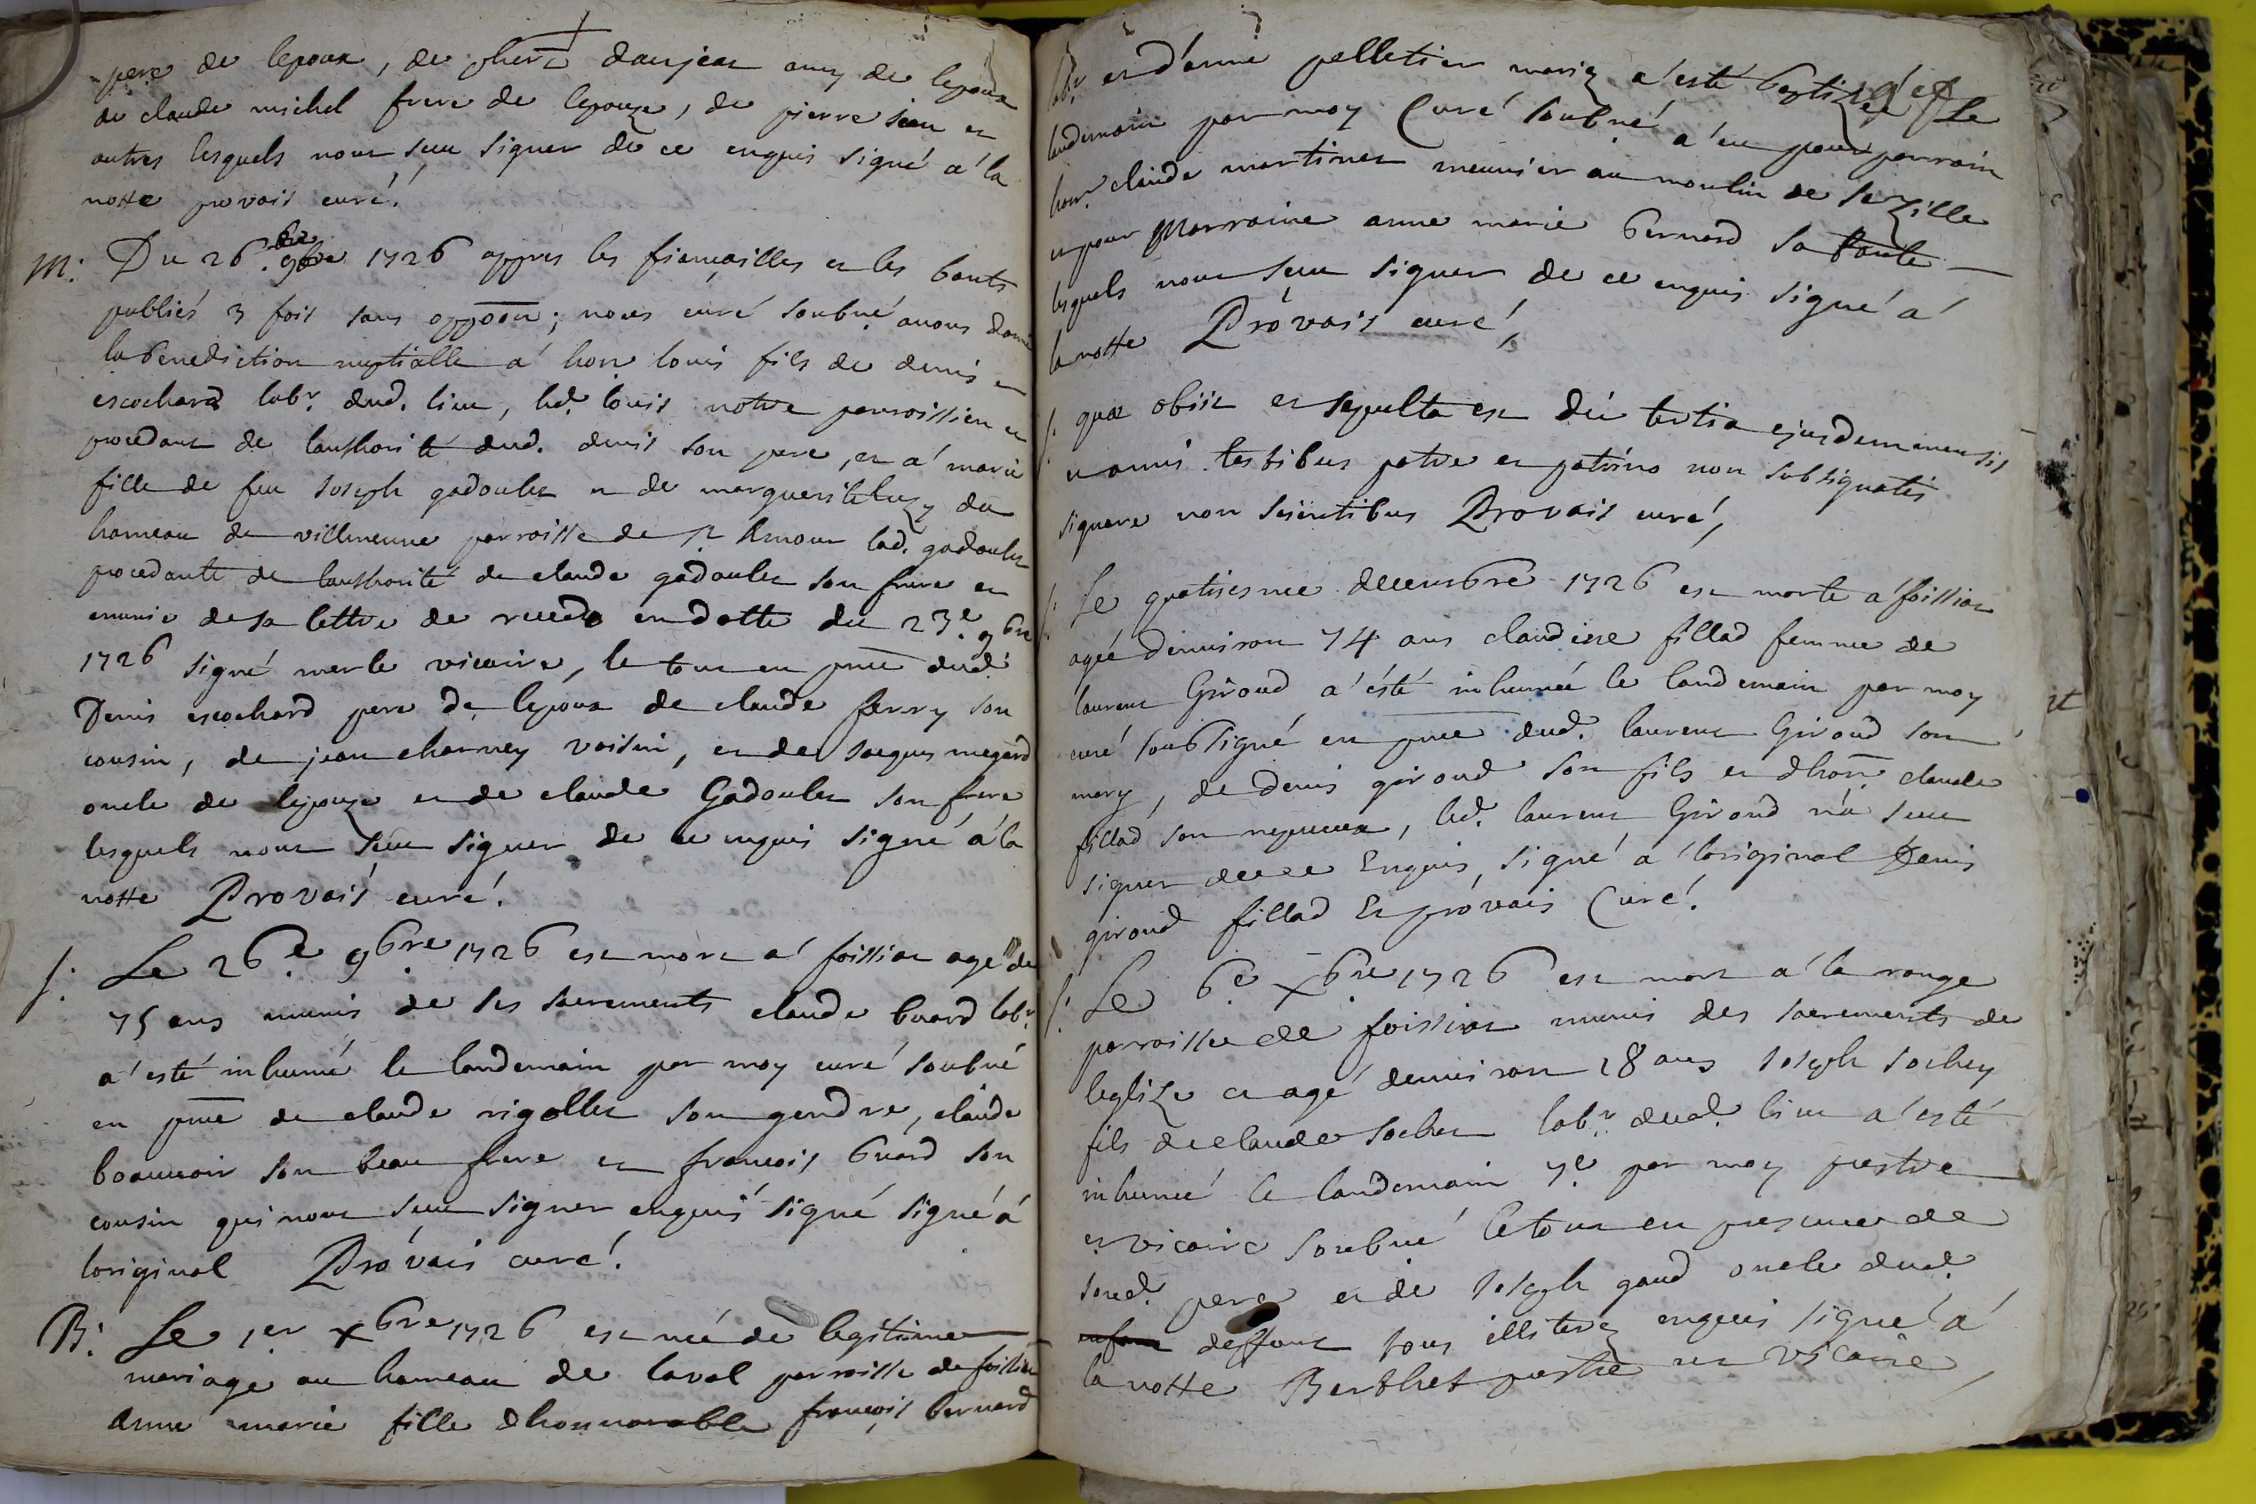 pere de lepoux, de phert danjean amy de lepoux
de claude michel frere de lepouze, de pierre jean et
autres lesquels nont sceu signer de ce enquis signé a la
notte provais curé.
M: Du 26. 9bre 1726 appres les fiancailles et les bants
publiés 3 fois sans oppoon; nous curé soubné avons donné
la benediction nuptialle a hon. louis fils de denis
escochard labr. dud. lieu, led. louis notre parroissien et
procedant de lauthorité dud. denis son pere, et a marie
fille de feu Joseph gadoulet et de marguerite luzy du
hameau de villeneuve parroisse de st Amour lad. gadoulet
procedante de lauthorité de claude gadoulet son frere et
munie de sa lettre de recedo en datte du 23e. 9bre
1726 signé merle vicaire, le tout en pnce dud.
Denis escochard pere de lepoux de claude ferry son
cousin, de jean charney voisin, et de Jacques megard
oncle de lepouze et de claude Gadoulet son frere
lesquels nont sceu signer de ce enquis signé a la
notte Provais curé.
s. Le 26e. 9bre 1726 est mort a foissiat agé de
75 ans munis de ses sacrements claude buard labr.
a esté inhumé le landemain par moy curé soubné
en pnce de claude rigollet son gendre, claude
beauvoir son beau frere et francois buard son
cousin qui nont sceu signer enquis signé signé a
loriginal Provais curé.
B. Le 1er xbre 1726 est née de legitime
mariage au hameau de laval parroisse de foissiat
Anne marie fille dhonnorable francois bernard
labr et d'anne pelletier mariez a esté baptizée le
landemain par moy Curé soubné a eu pour parrain
hon. claude martinet meunier au moulin de sezille
et pour Marraine anne marie bernard sa tante
lesquels nont sceu signer de ce enquis signé a
la notte Provais curé,
s. quae obiit et sepulta est die tertia ejusdem mensis
et anni testibus patre et patrino non subsignatis
signare non scientibus Provais curé,
s. Le quatriesme decembre 1726 est morte a foissiat
agée denviron 74 ans claudine fillad femme de
laurent Giroud a esté inhumée le landemain par moy
curé soubsigné en pnce dud. laurent Giroud son
mary, de denis giroud son fils et dhon claude
fillad son nepveux, led. laurent Giroud n'a sceu
signer de ce Enquis, signé a loriginal Denis
giroud fillad Et provais Curé.
s. Le 6e xbre 1726 est mort a la ronge
parroisse de foissiat munis des sacrements de
leglize et agé denviron 28 ans Joseph Sochey
fils de claude Sochet labr. dud. lieu a esté
inhumé le landemain 7e par moy prestre
et vicaire soubné le tout en presence de
sond. pere et de Joseph gaud oncle dud.
deffunt tous illiterez enquis signé a
la notte Berthet prestre et vicaire,